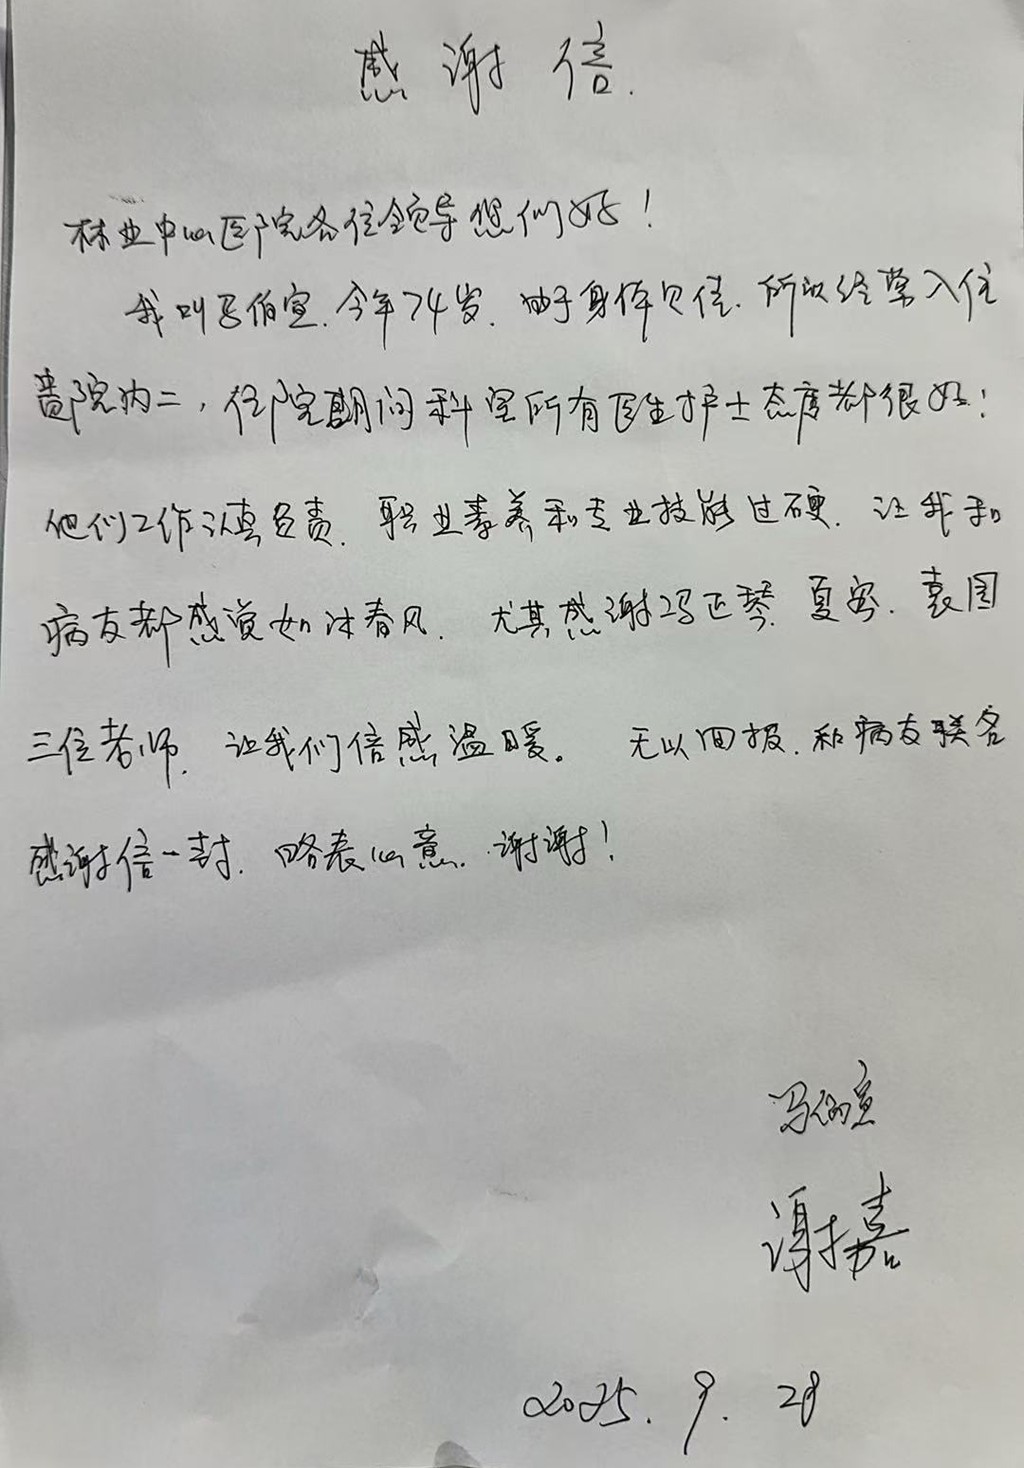 感谢信.
林业中心医院各位领导您们好！
我叫冯佰宣.今年74岁.由于身体欠佳.所以经常入住
贵院内二，住院期间科室所有医生护士态度都很好！
他们工作认真负责.职业素养和专业技能过硬.让我和
病友都感觉如沐春风.尤其感谢冯正琴.夏宓.袁园
三位老师.让我们倍感温暖。无以回报.和病友联名
感谢信一封.略表心意.谢谢！
冯佰宣
谢嘉
2025.9.28